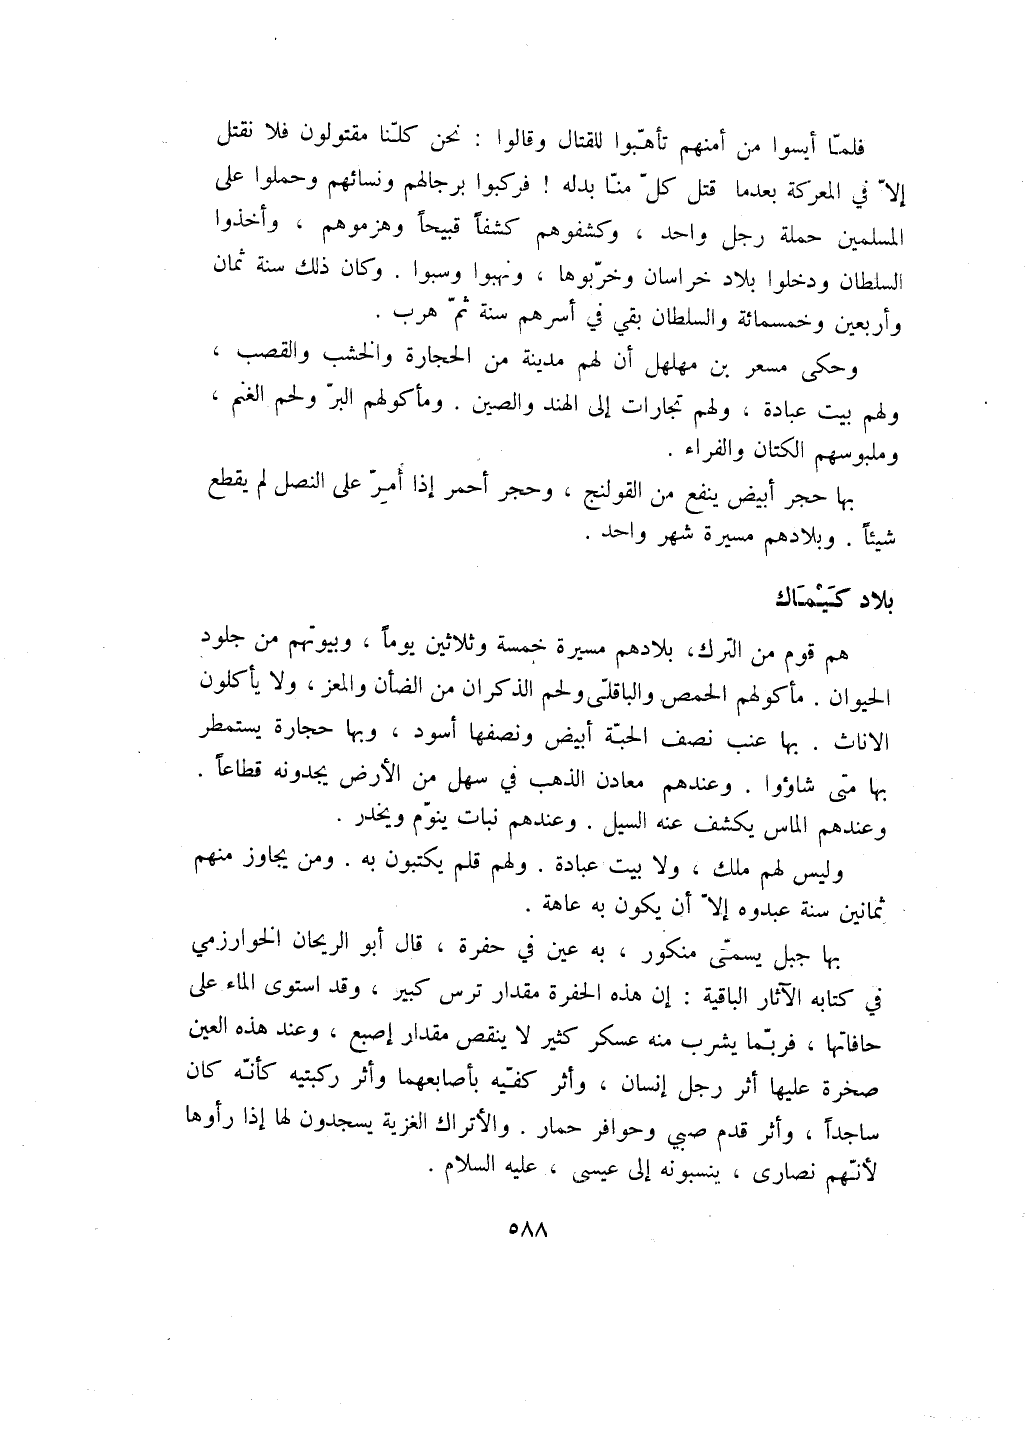 فلمّا أيسوا من أمنهم تأهّبوا للقتال وقالوا : نحن كلّنا مقتولون فلا نقتل
إلاّ في المعركة بعدما قتل كلّ منّا بدله ! فركبوا برجالهم ونسائهم وحملوا على
المسلمين حملة رجل واحد ، وكشفوهم كشفاً قبيحاً وهزموهم ، وأخذوا
السلطان ودخلوا بلاد خراسان وخرّبوها ، ونهبوا وسبوا . وكان ذلك سنة ثمان
وأربعين وخمسمائة والسلطان بقي في أسرهم سنة ثمّ هرب .
وحكى مسعر بن مهلهل أن لهم مدينة من الحجارة والخشب والقصب ،
ولهم بيت عبادة ، ولهم تجارات إلى الهند والصين . ومأكولهم البرّ ولحم الغنم ،
وملبوسهم الكتان والفراء .
بها حجر أبيض ينفع من القولنج ، وحجر أحمر إذا أُمِرّ على النصل لم يقطع
شيئاً . وبلادهم مسيرة شهر واحد .
بلاد كَيْمَاك
هم قوم من الترك، بلادهم مسيرة خمسة وثلاثين يوماً ، وبيوتهم من جلود
الحيوان . مأكولهم الحمص والباقلّى ولحم الذكران من الضأن والمعز ، ولا يأكلون
الاناث . بها عنب نصف الحبّة أبيض ونصفها أسود ، وبها حجارة يستمطر
بها متى شاؤوا . وعندهم معادن الذهب في سهل من الأرض يجدونه قطاعاً .
وعندهم الماس يكشف عنه السيل . وعندهم نبات ينوّم ويخدر .
وليس لهم ملك ، ولا بيت عبادة . ولهم قلم يكتبون به . ومن يجاوز منهم
ثمانين سنة عبدوه إلاّ أن يكون به عاهة .
بها جبل يسمّى منكور ، به عين في حفرة ، قال أبو الريحان الخوارزمي
في كتابه الآثار الباقية : إن هذه الحفرة مقدار ترس كبير ، وقد استوى الماء على
حافاتها ، فربّما يشرب منه عسكر كثير لا ينقص مقدار إصبع ، وعند هذه العين
صخرة عليها أثر رجل إنسان ، وأثر كفّيه بأصابعهما وأثر ركبتيه كأنّه كان
ساجداً ، وأثر قدم صبي وحوافر حمار . والأتراك الغزية يسجدون لها إذا رأوها
لأنّهم نصارى ، ينسبونه إلى عيسى ، عليه السلام .
٥٨٨